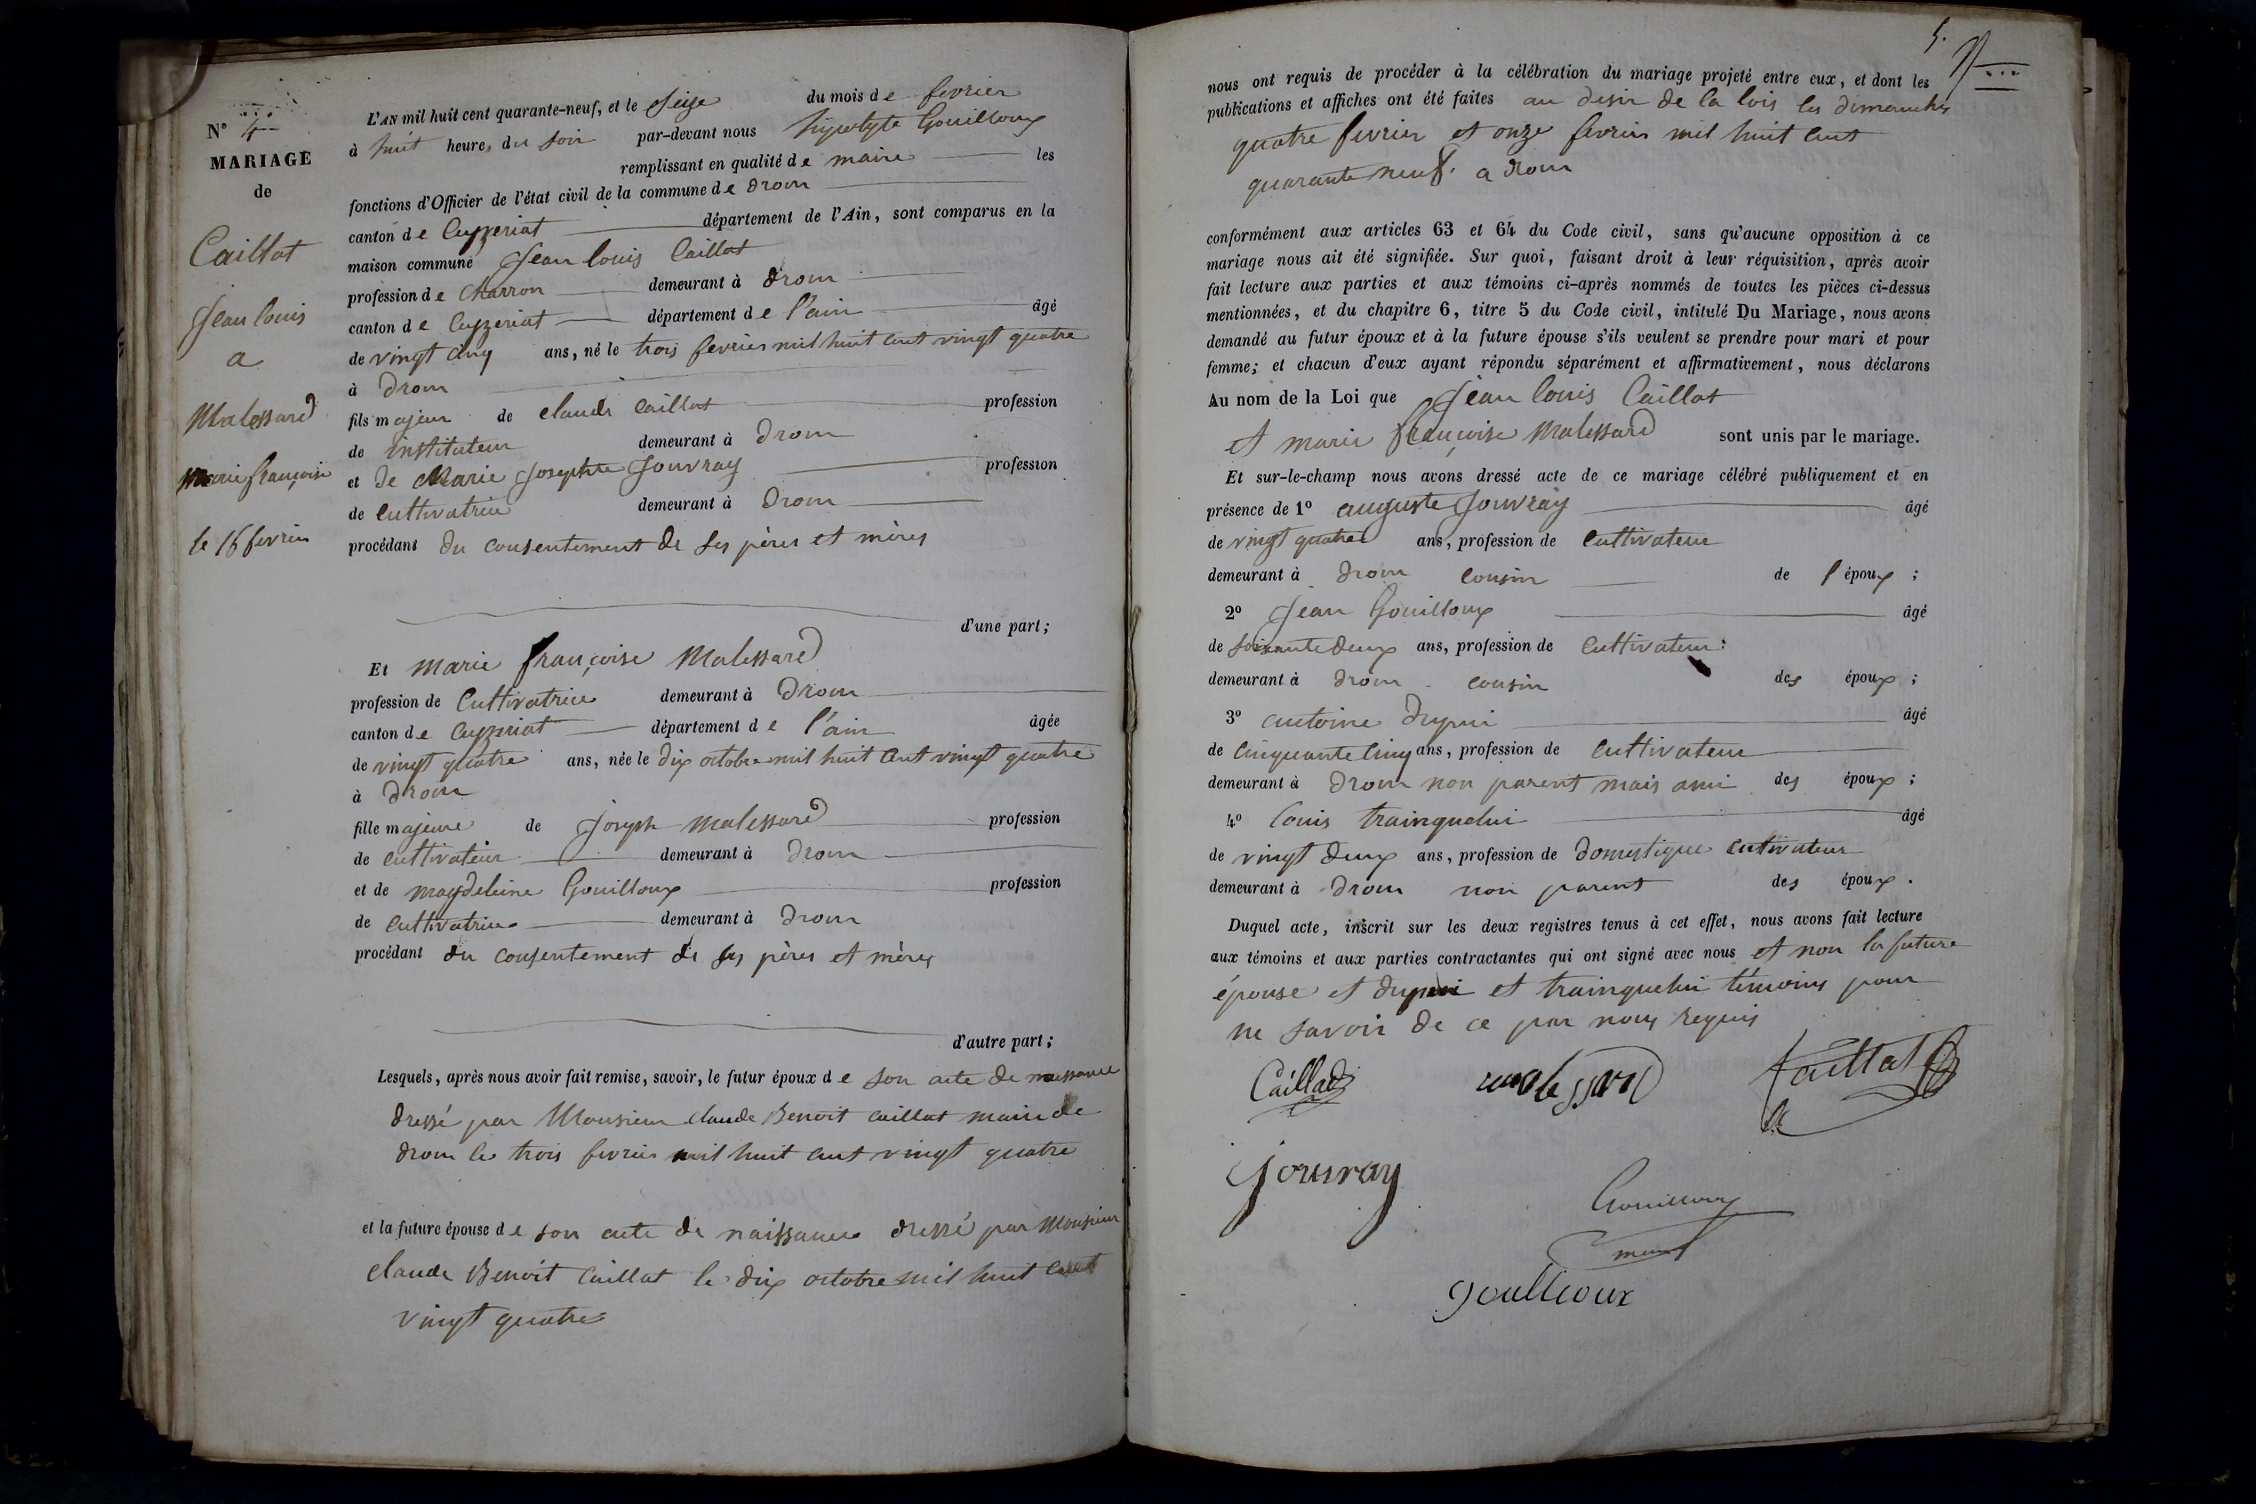 N° 4
MARIAGE
de
Caillat
Jean Louis
a
Malessard
Marie françoise
le 16 fevrier
L'AN mil huit cent quarante-neuf, et le Seize du mois de fevrier
à huit heures du soir par-devant nous hypolyte Gouilloux
remplissant en qualité de maire les
fonctions d'Officier de l'état civil de la commune de drom
canton de Ceyzeriat département de l'Ain, sont comparus en la
maison commune Jean Louis Caillat
profession de charron demeurant à drom
canton de Ceyzeriat département de l'ain âgé
de vingt cinq ans, né le trois fevrier mil huit cent vingt quatre
à drom
fils majeur de claude Caillat profession
de instituteur demeurant à drom
et de Marie Josephte Jouvray profession
de cultivatrice demeurant à drom
procédant du consentement de ses pères et mères
d'une part;
Et marie françoise Malessard
profession de Cultivatrice demeurant à Drom
canton de Ceyzeriat département de l'ain âgée
de vingt quatre ans, née le dix octobre mil huit cent vingt quatre
à drom
fille majeure de Joseph malessard profession
de cultivateur demeurant à drom
et de magdeleine Gouilloux profession
de cultivatrice demeurant à drom
procédant du consentement de ses pères et mères
d'autre part;
Lesquels, après nous avoir fait remise, savoir, le futur époux de son acte de naissance
dressé par Monsieur claude Benoit caillat maire de
drom le trois fevrier mil huit cent vingt quatre
et la future épouse de son acte de naissance dressé par Monsieur
claude Benoit Caillat le dix octobre mil huit cent
vingt quatre
5.
nous ont requis de procéder à la célébration du mariage projeté entre eux, et dont les
publications et affiches ont été faites au desir de la lois les dimanches
quatre fevrier et onze fevrier mil huit cent
quarante neuf. a drom
conformément aux articles 63 et 64 du Code civil, sans qu'aucune opposition à ce
mariage nous ait été signifiée. Sur quoi, faisant droit à leur réquisition, après avoir
fait lecture aux parties et aux témoins ci-après nommés de toutes les pièces ci-dessus
mentionnées, et du chapitre 6, titre 5 du Code civil, intitulé Du Mariage, nous avons
demandé au futur époux et à la future épouse s'ils veulent se prendre pour mari et pour
femme; et chacun d'eux ayant répondu séparément et affirmativement, nous déclarons
Au nom de la Loi que Jean Louis Caillat
et marie françoise Malessard sont unis par le mariage.
Et sur-le-champ nous avons dressé acte de ce mariage célébré publiquement et en
présence de 1° auguste Jouvray âgé
de vingt quatre ans, profession de Cultivateur
demeurant à drom cousin de l'époux;
2° Jean Gouilloux âgé
de soixante deux ans, profession de Cultivateur
demeurant à drom cousin des époux;
3° antoine dupui âgé
de cinquante cinq ans, profession de Cultivateur
demeurant à drom non parent mais ami des époux;
4° Louis trainquelui âgé
de vingt deux ans, profession de domestique cultivateur
demeurant à drom non parent des époux.
Duquel acte, inscrit sur les deux registres tenus à cet effet, nous avons fait lecture
aux témoins et aux parties contractantes qui ont signé avec nous et non la future
épouse et dupui et trainquelui témoins pour
ne savoir de ce par nous requis
Caillat malessard Caillat
Jouvray
Gouilloux
maire
goullioux